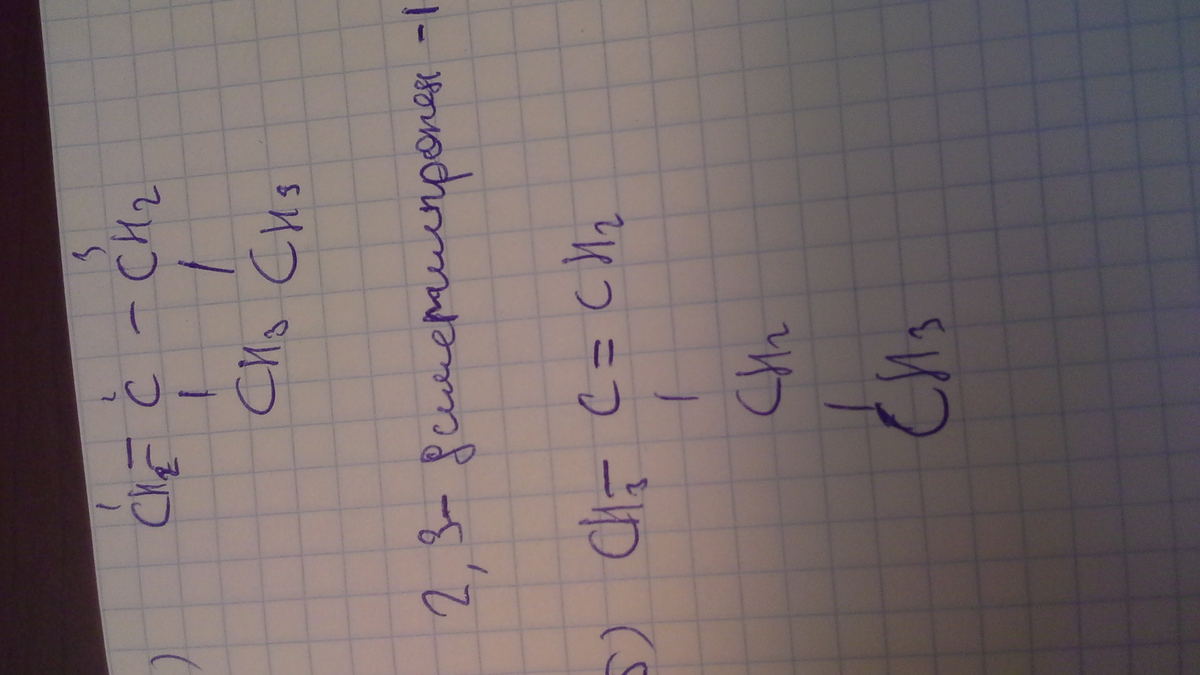 1 2 3
CH2 = C - CH2
| |
CH3 CH3
2,3-диметилпропен-1
б) CH3 - C = CH2
|
CH2
|
CH3